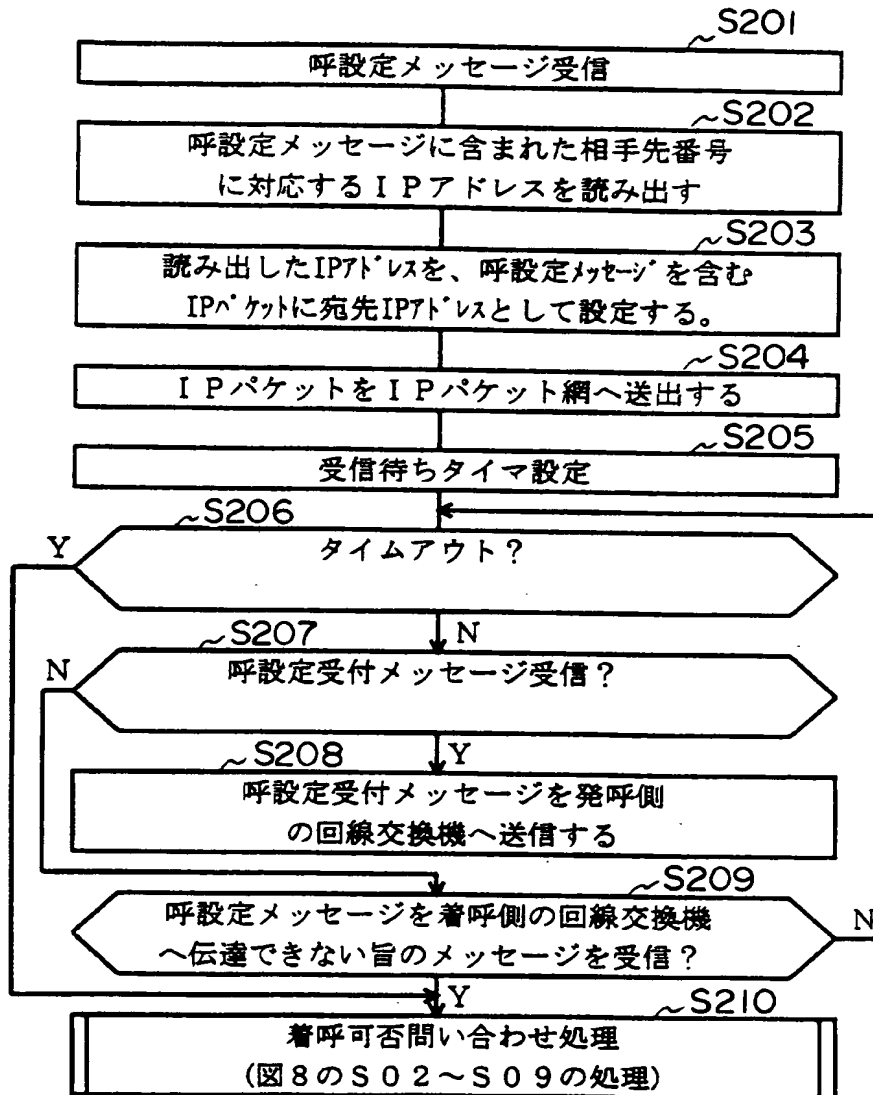 S201
呼設定メッセージ受信
S202
呼設定メッセージに含まれた相手先番号
に対応するIPアドレスを読み出す
S203
読み出したIPアドレスを、呼設定メッセージを含む
IPパケットに宛先IPアドレスとして設定する。
S204
IPパケットをIPパケット網へ送出する
S205
受信待ちタイマ設定
S206
Y
タイムアウト?
N
S207
N
呼設定受付メッセージ受信?
Y
S208
呼設定受付メッセージを発呼側
の回線交換機へ送信する
S209
呼設定メッセージを着呼側の回線交換機
へ伝達できない旨のメッセージを受信?
N
Y
S210
着呼可否問い合わせ処理
(図8のS02~S09の処理)